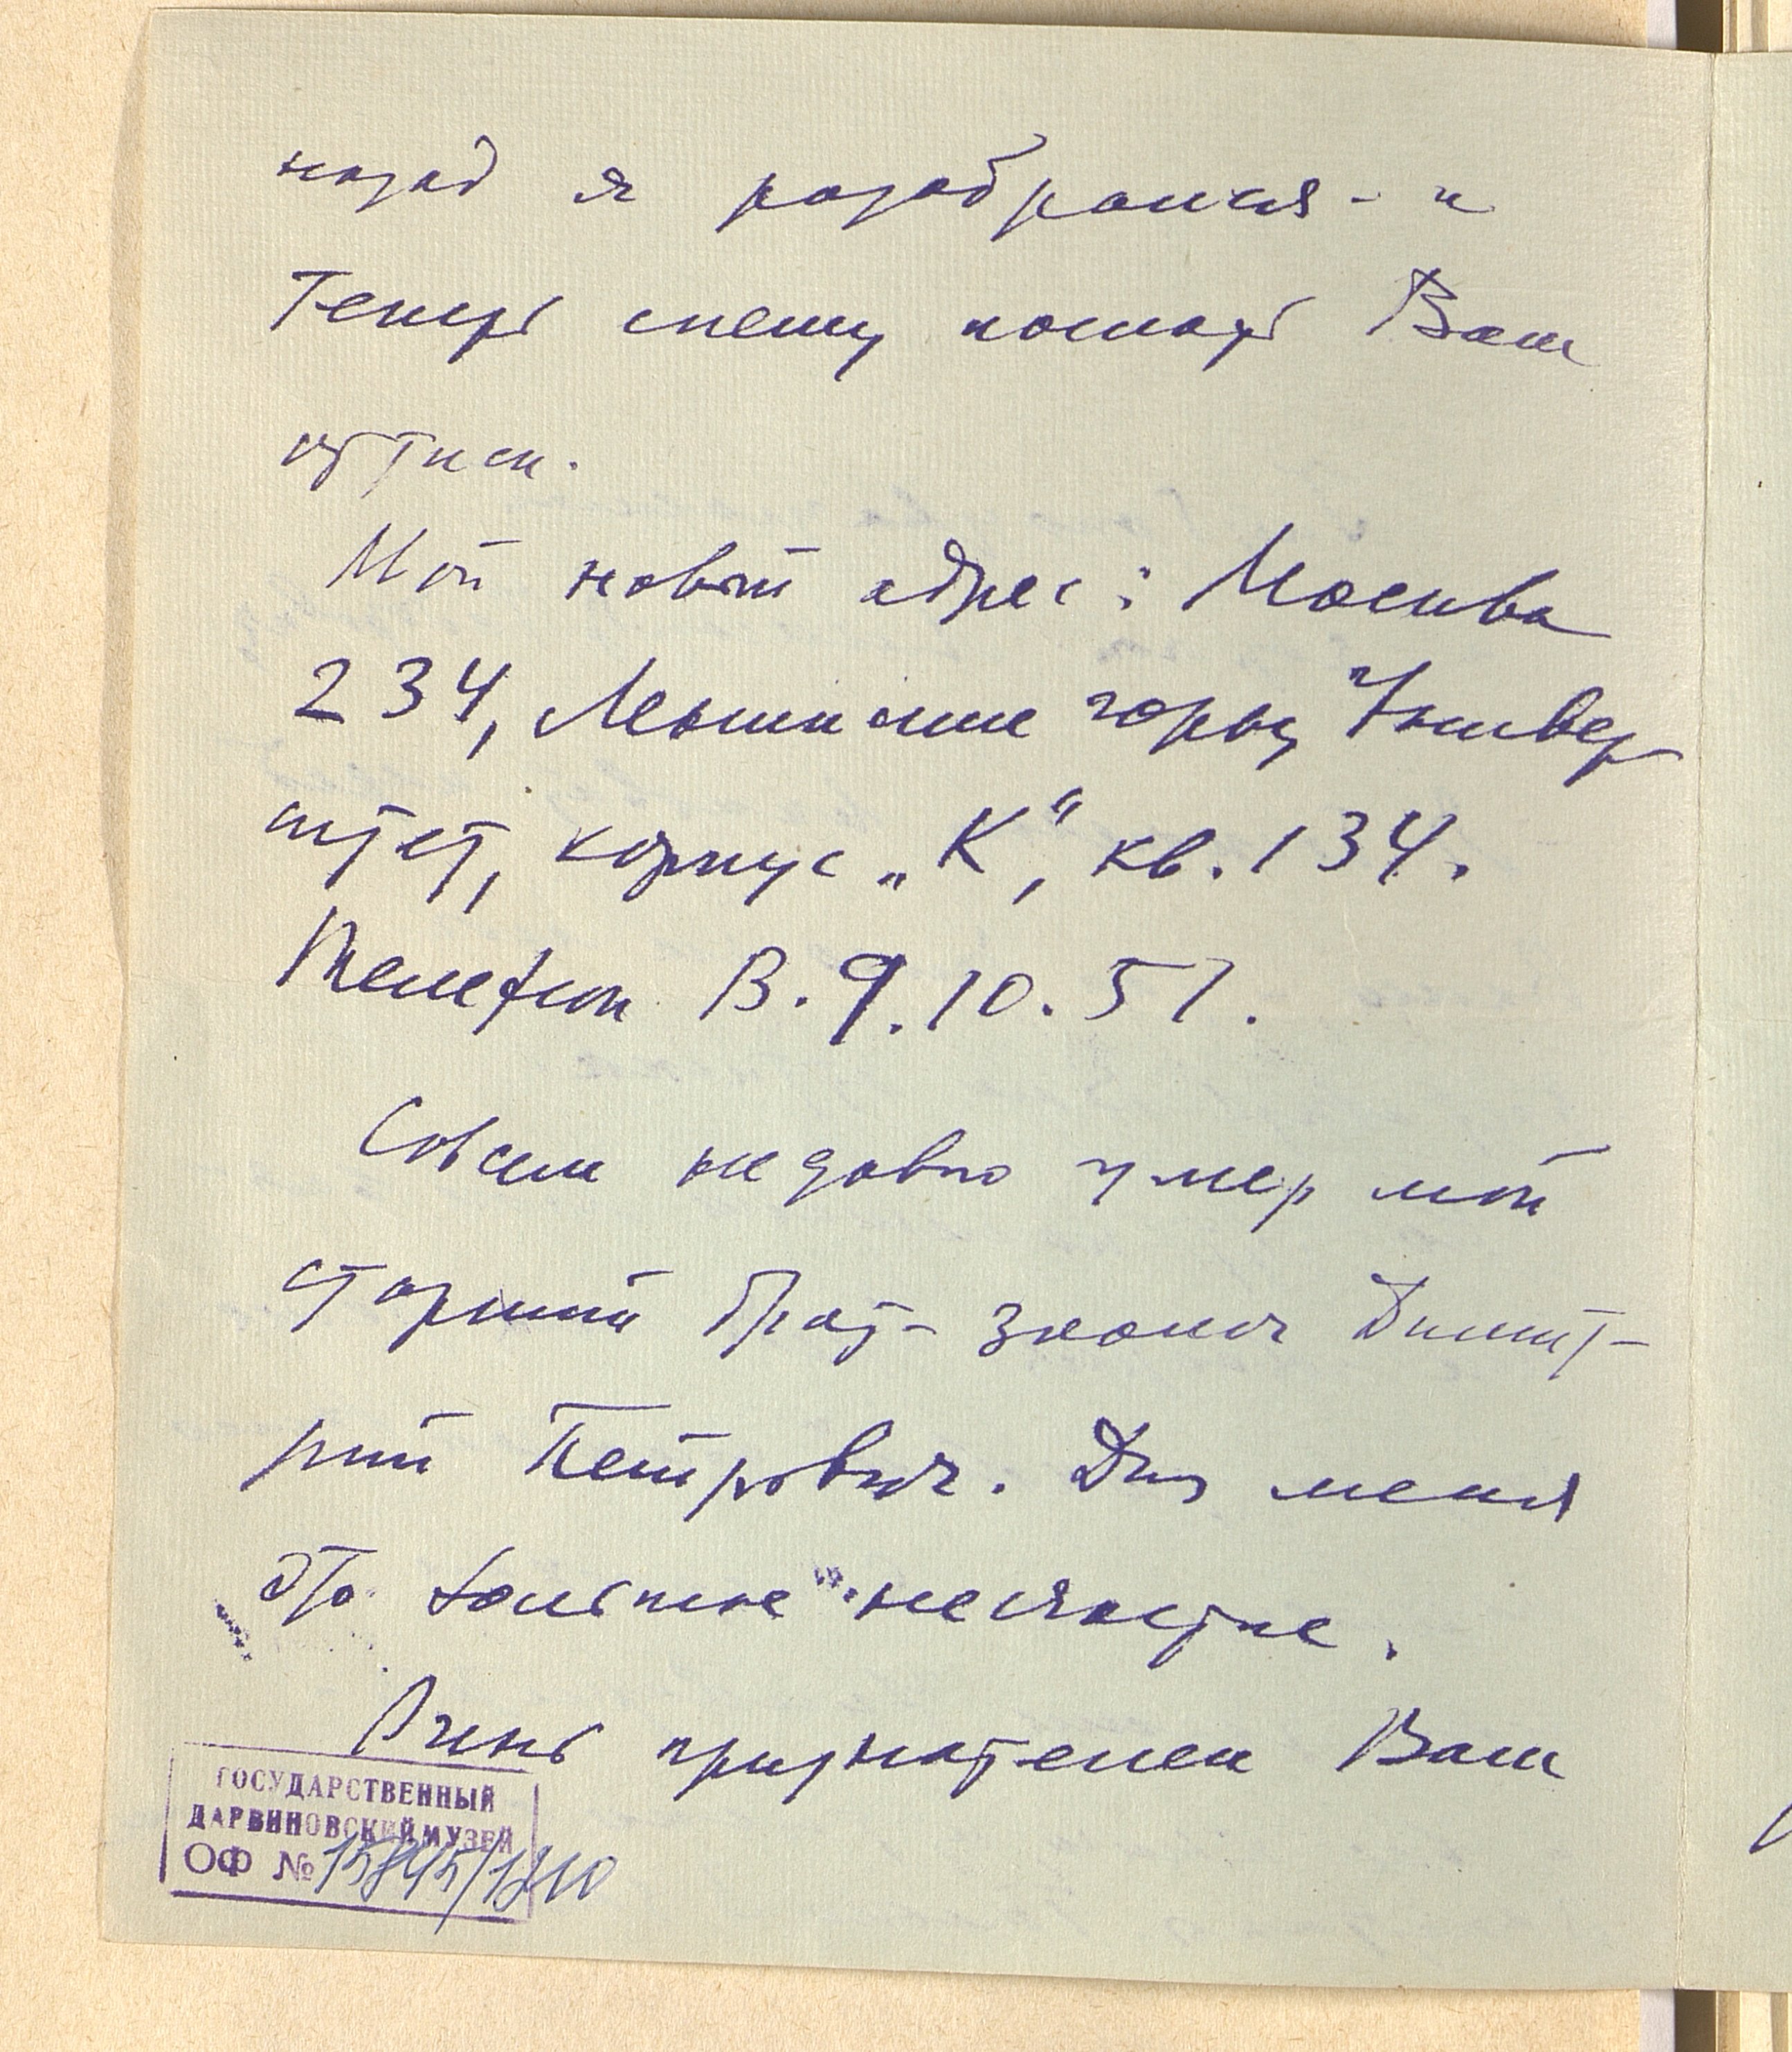 назад я разобрался - и
теперь спешу послать Вам
оттиски.
Мой новый адрес: Москва
234, Ленинские горы, Универ-
ситет, корпус „К“, кв. 134.
Телефон В.9.10.57.
Совсем недавно умер мой
старший брат - зоолог Димит-
рий Петрович. Для меня
это большое несчастие.
Очень признателен Вам
ГОСУДАРСТВЕННЫЙ
ДАРВИНОВСКИЙ МУЗЕЙ
ОФ №